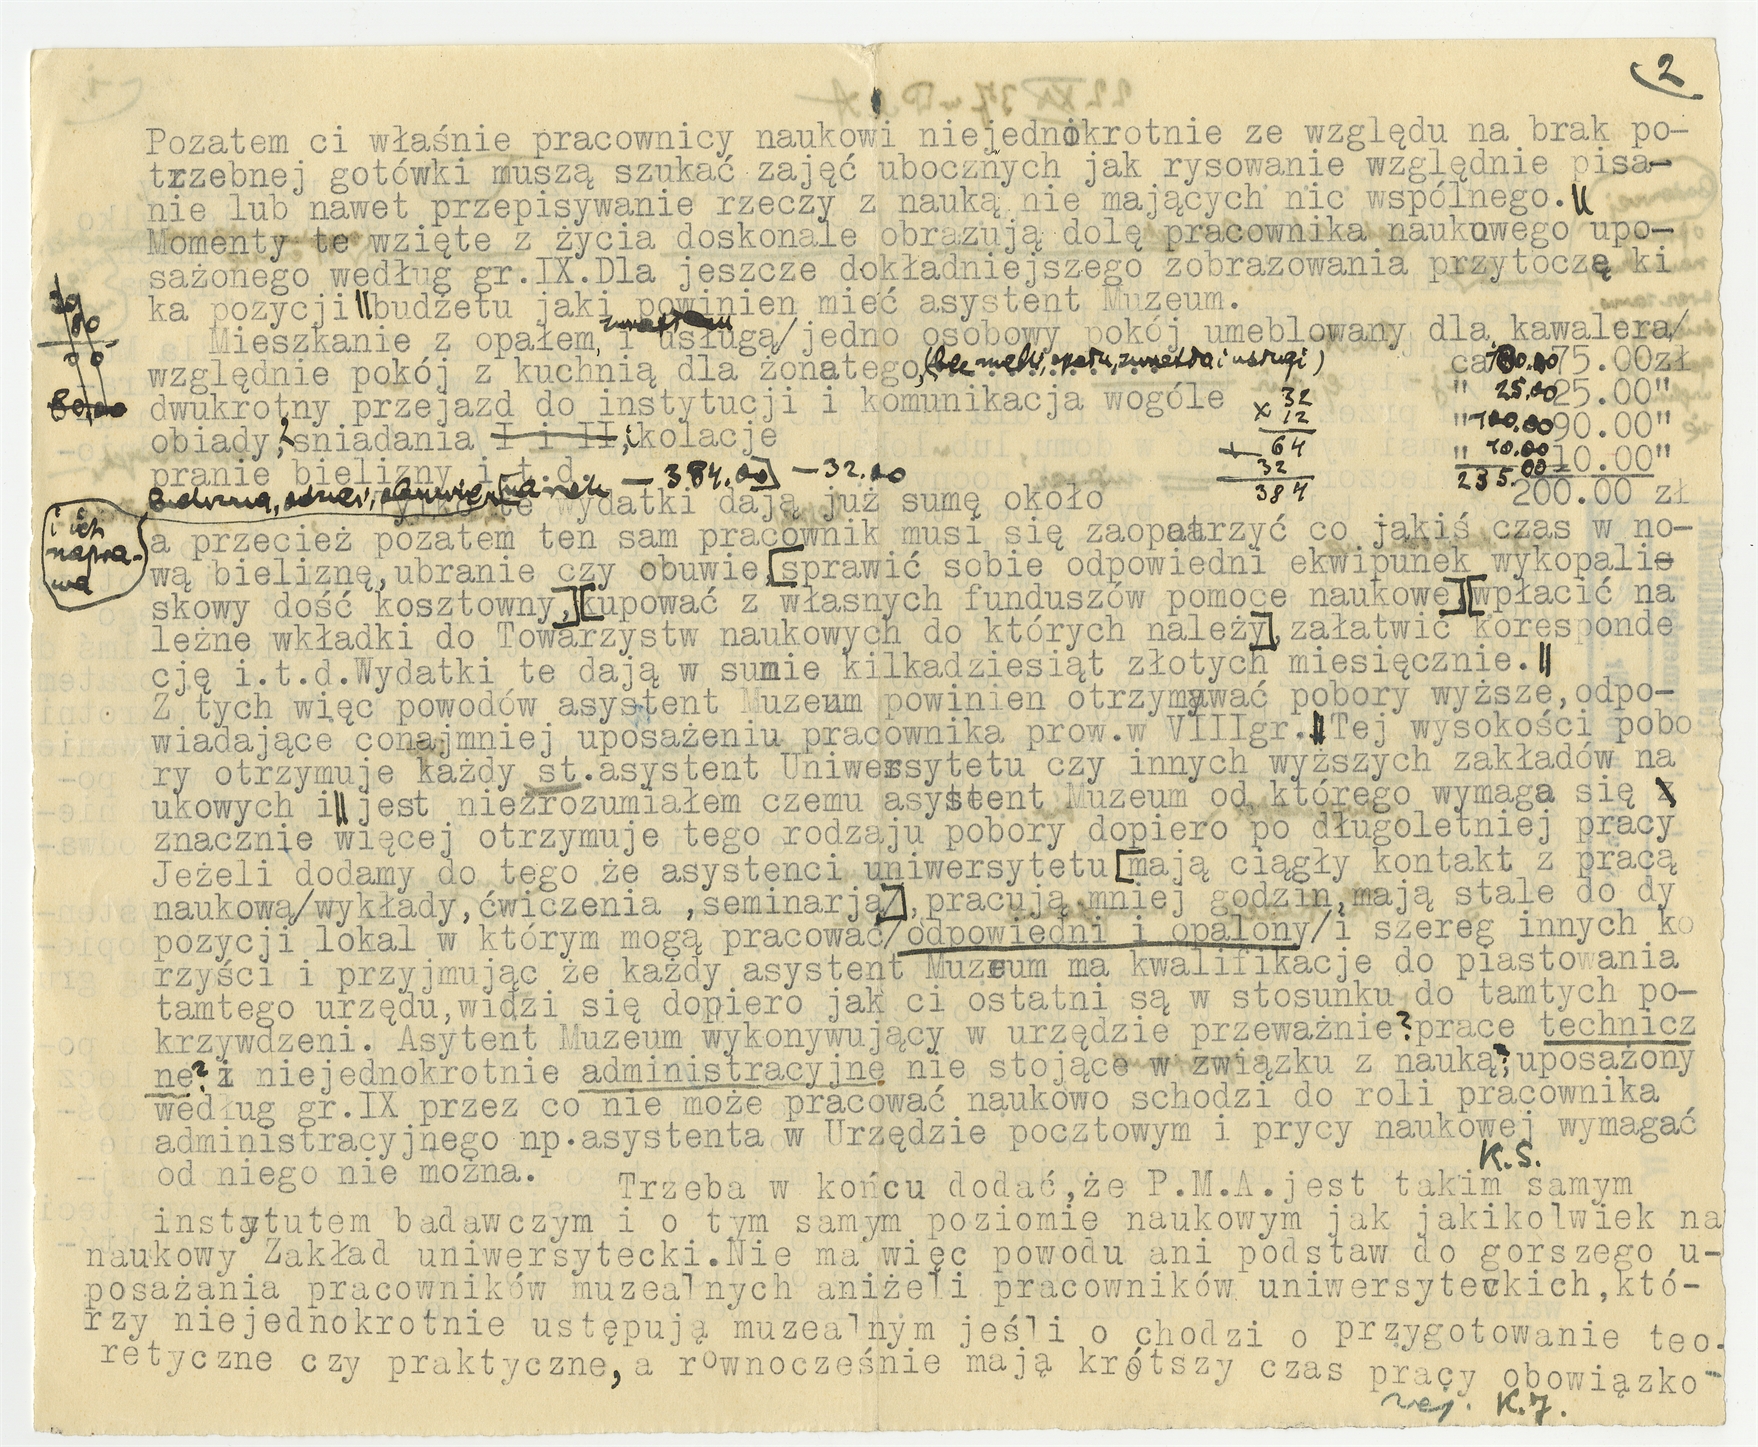 2
Pozatem ci właśnie pracownicy naukowi niejednokrotnie ze względu na brak po-
trzebnej gotówki muszą szukać zajęć ubocznych jak rysowanie względnie pisa-
nie lub nawet przepisywanie rzeczy z nauką nie mających nic wspólnego.||
Momenty te wzięte z życia doskonale obrazują dolę pracownika naukowego upo-
sażonego według gr.IX.Dla jeszcze dokładniejszego zobrazowania przytoczę ki
ka pozycji||budżetu jaki powinien mieć asystent Muzeum.
Mieszkanie z opałem, i usługą/jedno osobowy pokój umeblowany dla kawalera/
względnie pokój z kuchnią dla żonatego,(bez mebli, opału, światła i usługi) ca 80.00 75.00zł
80.00
dwukrotny przejazd do instytucji i komunikacja wogóle " 25.00 25.00"
32
x 12
64
32
384
obiady, śniadania I i II, i kolacje " 100.00 90.00"
pranie bielizny i t.d. " 10.00 10.00"
— 384.00] — 32.00
235.00
Tylko te wydatki dają już sumę około 200.00 zł
i ich
napra-
wa
a przecież pozatem ten sam pracownik musi się zaopatrzyć co jakiś czas w no-
wą bieliznę,ubranie czy obuwie,[sprawić sobie odpowiedni ekwipunek wykopalis
skowy dość kosztowny,][kupować z własnych funduszów pomoce naukowe][wpłacić na
leżne wkładki do Towarzystw naukowych do których należy], załatwić koresponde
cję i.t.d.Wydatki te dają w sumie kilkadziesiąt złotych miesięcznie.||
Z tych więc powodów asystent Muzeum powinien otrzymywać pobory wyższe,odpo-
wiadające conajmniej uposażeniu pracownika prow.w VIIIgr.||Tej wysokości pobo
ry otrzymuje każdy st.asystent Uniwersytetu czy innych wyższych zakładów na
ukowych i||jest niezrozumiałem czemu asystent Muzeum od którego wymaga się
znacznie więcej otrzymuje tego rodzaju pobory dopiero po długoletniej pracy
Jeżeli dodamy do tego że asystenci uniwersytetu[mają ciągły kontakt z pracą
naukową/wykłady,ćwiczenia ,seminarja/],pracują mniej godzin,mają stale do dy
pozycji lokal w którym mogą pracować/odpowiedni i opalony/i szereg innych ko
rzyści i przyjmując że każdy asystent Muzeum ma kwalifikacje do piastowania
tamtego urzędu,widzi się dopiero jak ci ostatni są w stosunku do tamtych po-
krzywdzeni. Asytent Muzeum wykonywujący w urzędzie przeważnie?prace technicz
ne? i niejednokrotnie administracyjne nie stojące w związku z nauką?,uposażony
według gr.IX przez co nie może pracować naukowo schodzi do roli pracownika
administracyjnego np.asystenta w Urzędzie pocztowym i prycy naukowej wymagać
od niego nie można.
K.S.
Trzeba w końcu dodać,że P.M.A.jest takim samym
instytutem badawczym i o tym samym poziomie naukowym jak jakikolwiek na
naukowy Zakład uniwersytecki.Nie ma więc powodu ani podstaw do gorszego u-
posażania pracowników muzealnych aniżeli pracowników uniwersyteckich,któ-
rzy niejednokrotnie ustępują muzealnym jeśli o chodzi o przygotowanie teo-
retyczne czy praktyczne, a równocześnie mają krótszy czas pracy obowiązko-
wej. K.J.